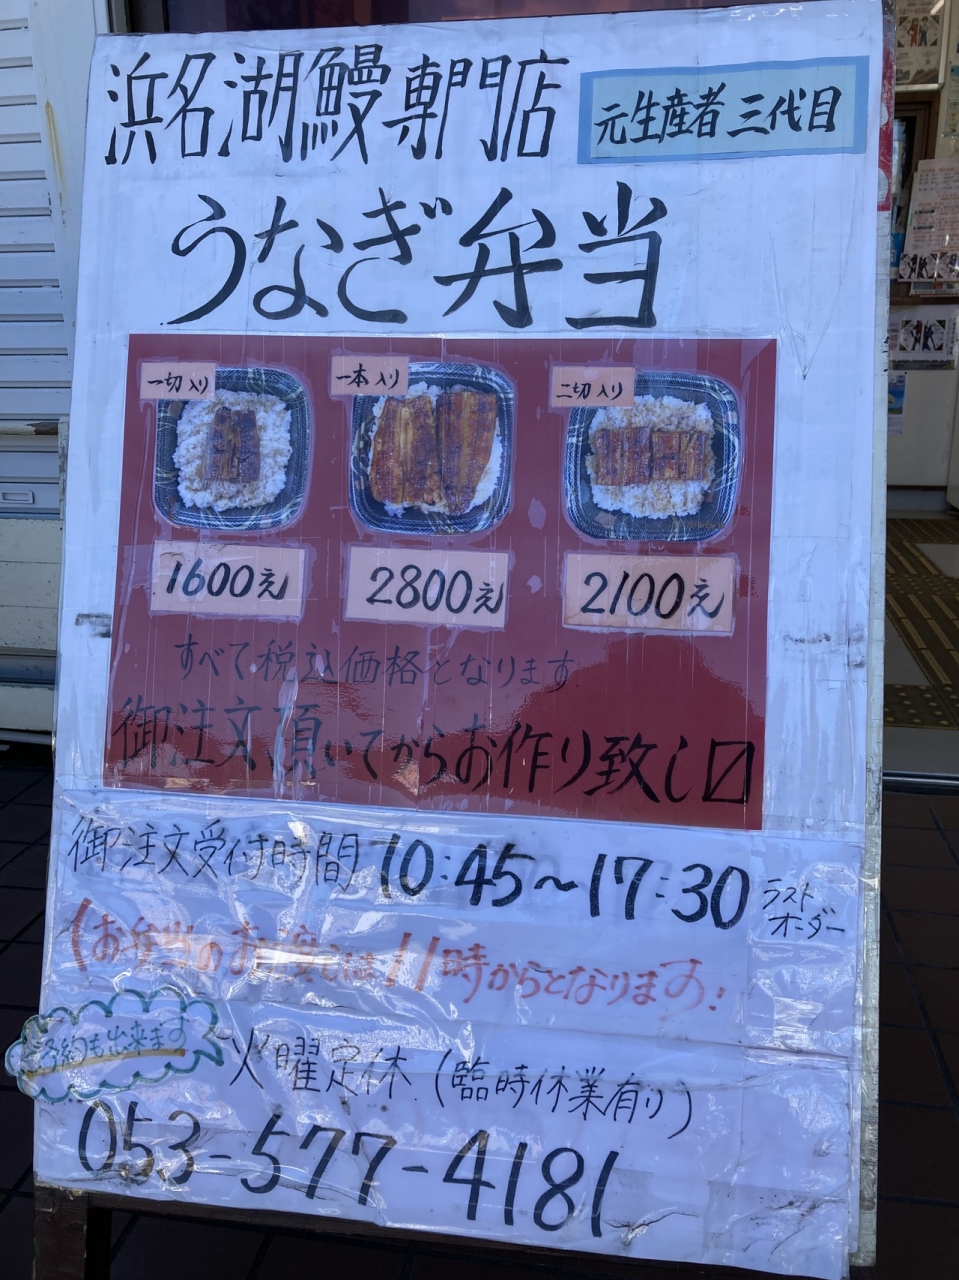 浜名湖鰻専門店
元生産者 三代目
うなぎ弁当
一切入り
一本入り
二切入り
1600え
2800え
2100え
すべて税込価格となります。
御注文頂いてからお作り致し〼
御注文受付時間 10:45〜17:30 ラストオーダー
(お弁当のお渡しは11時からとなります。)
予約も出来ます
火曜定休(臨時休業有り)
053-577-4181